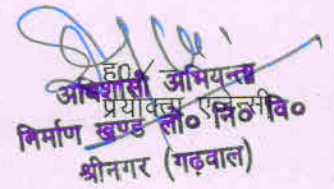 ह०/
अधिशासी अभियन्ता
प्रयोक्ता एजेन्सी
निर्माण खण्ड लो० नि० वि०
श्रीनगर (गढ़वाल)